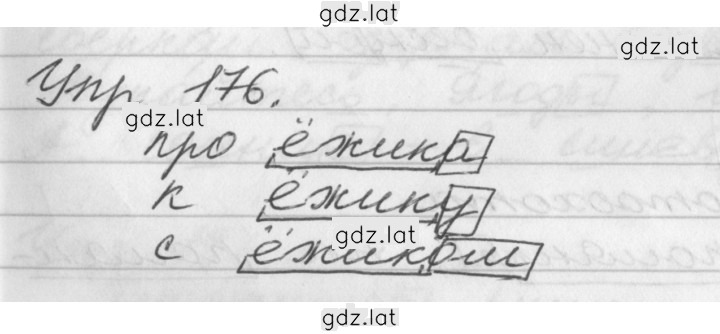 gdz.lat
gdz.lat
Упр. 176.
gdz.lat
про ёжика
к ёжику
gdz.lat
с ёжиком
gdz.lat